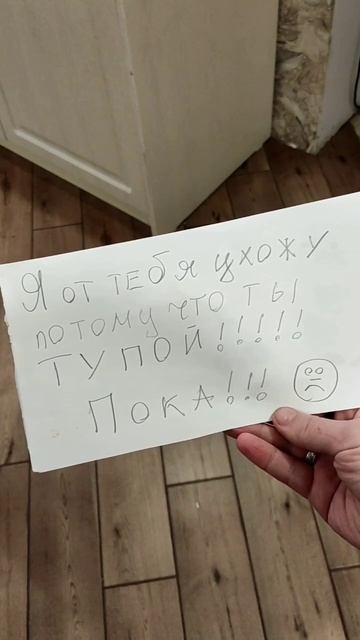 Я от тебя ухожу
потому что ты
тупой!!!!!
Пока!!!